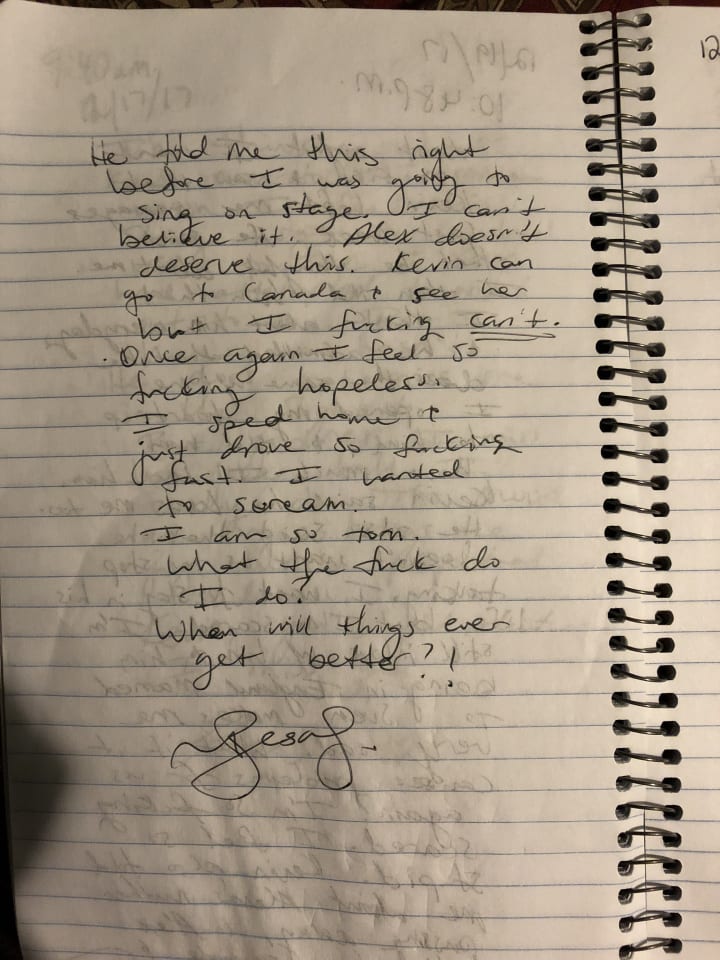 He told me this right
before I was going to
sing on stage. I can't
believe it. Alex doesn't
deserve this. Kevin can
go to Canada + see her
but I fucking can't.
Once again I feel so
fucking hopeless.
I sped home +
just drove so fucking
fast. I wanted
to scream.
I am so torn.
What the fuck do
I do?
When will things ever
get better?!
12